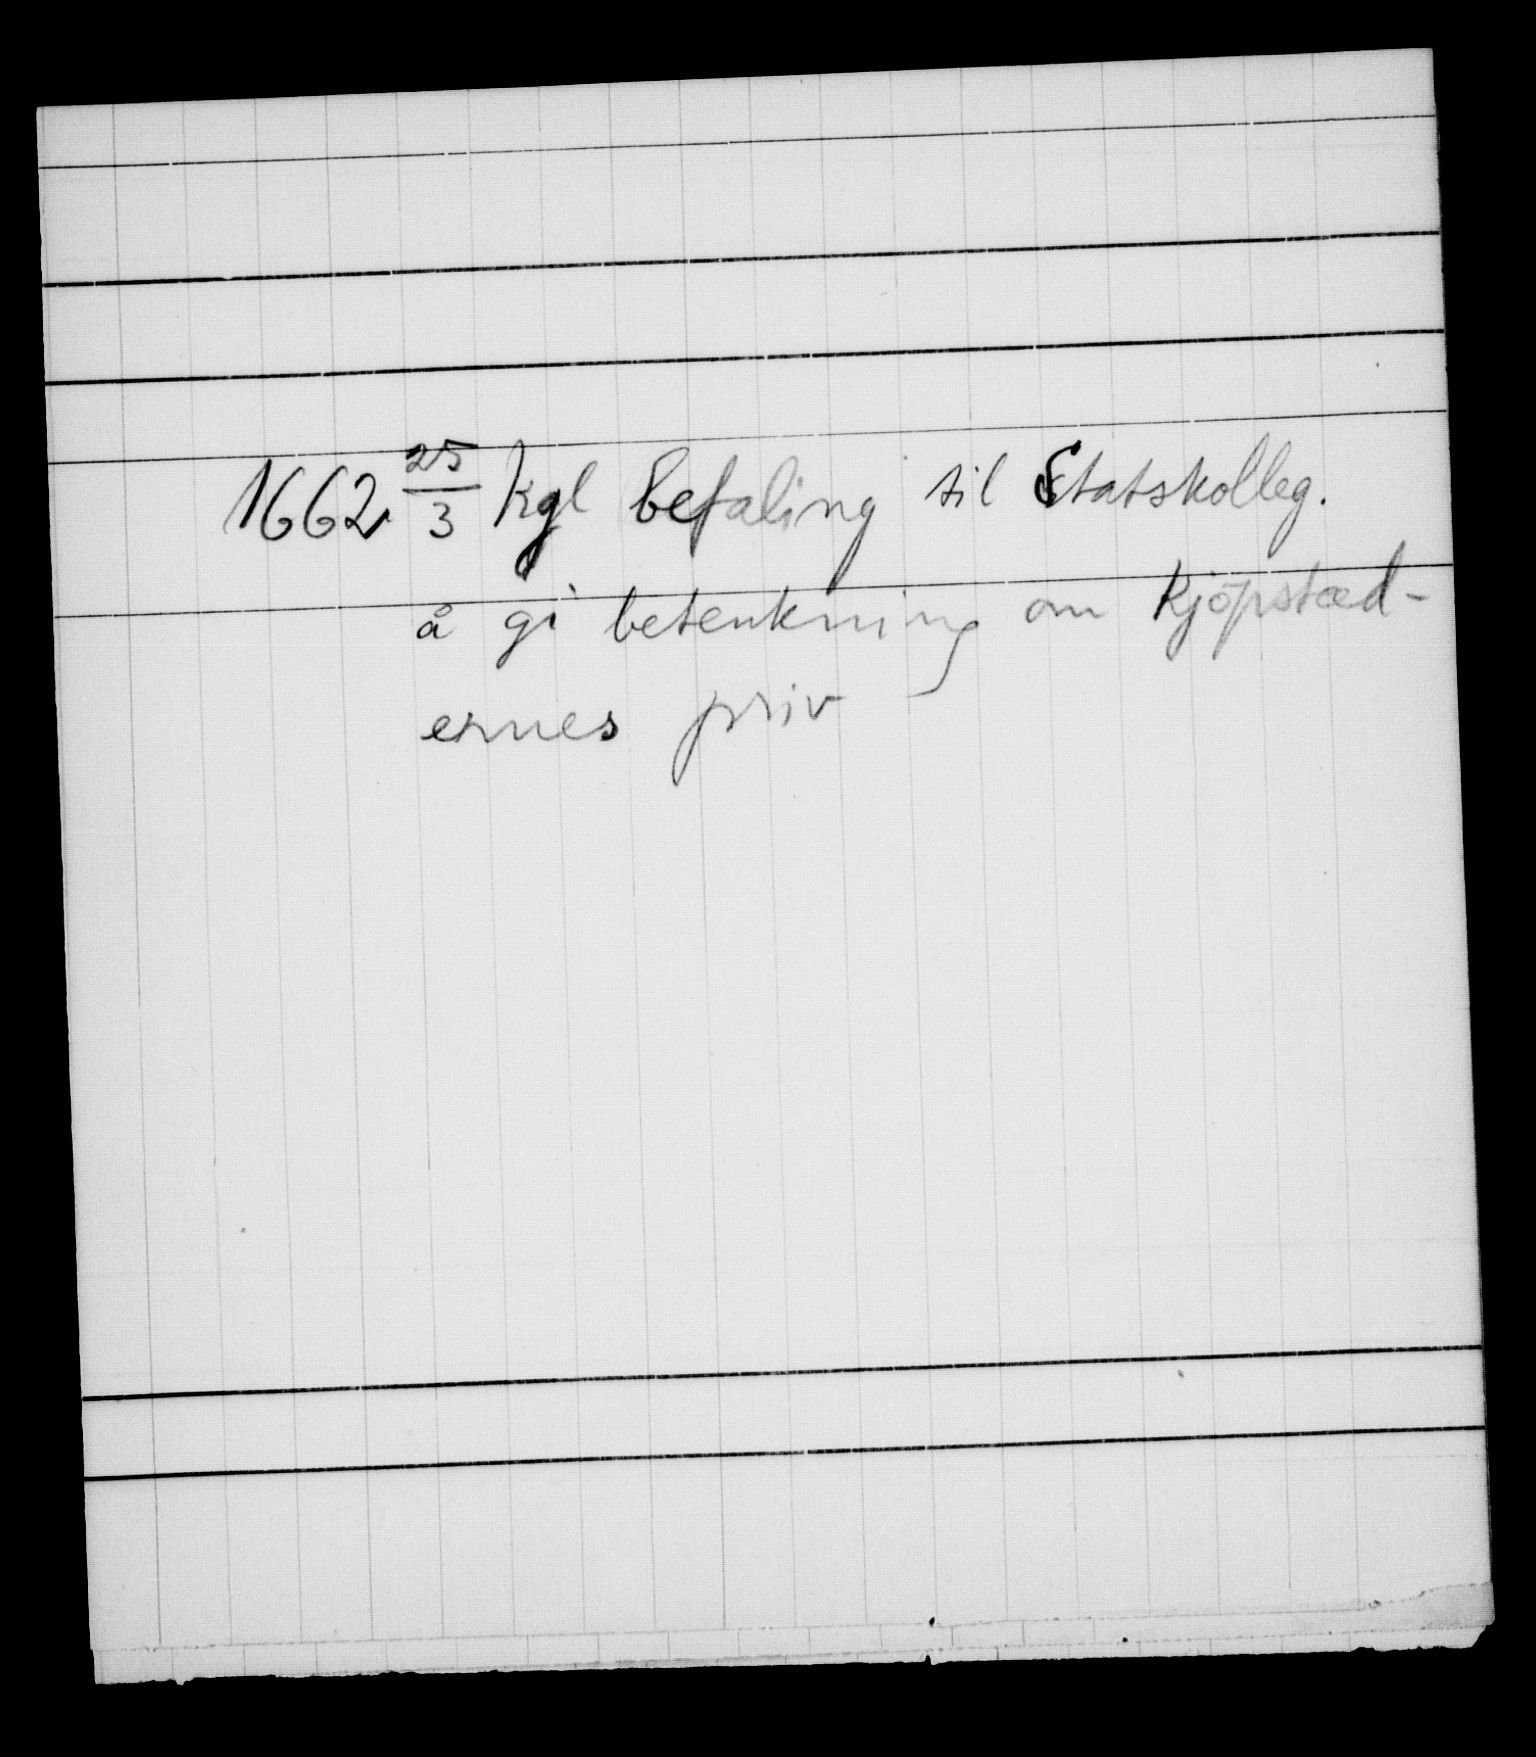 1662 25/3 kgl befaling til Statskolleg.
å gi betenkning om kjöpstæd-
ernes priv